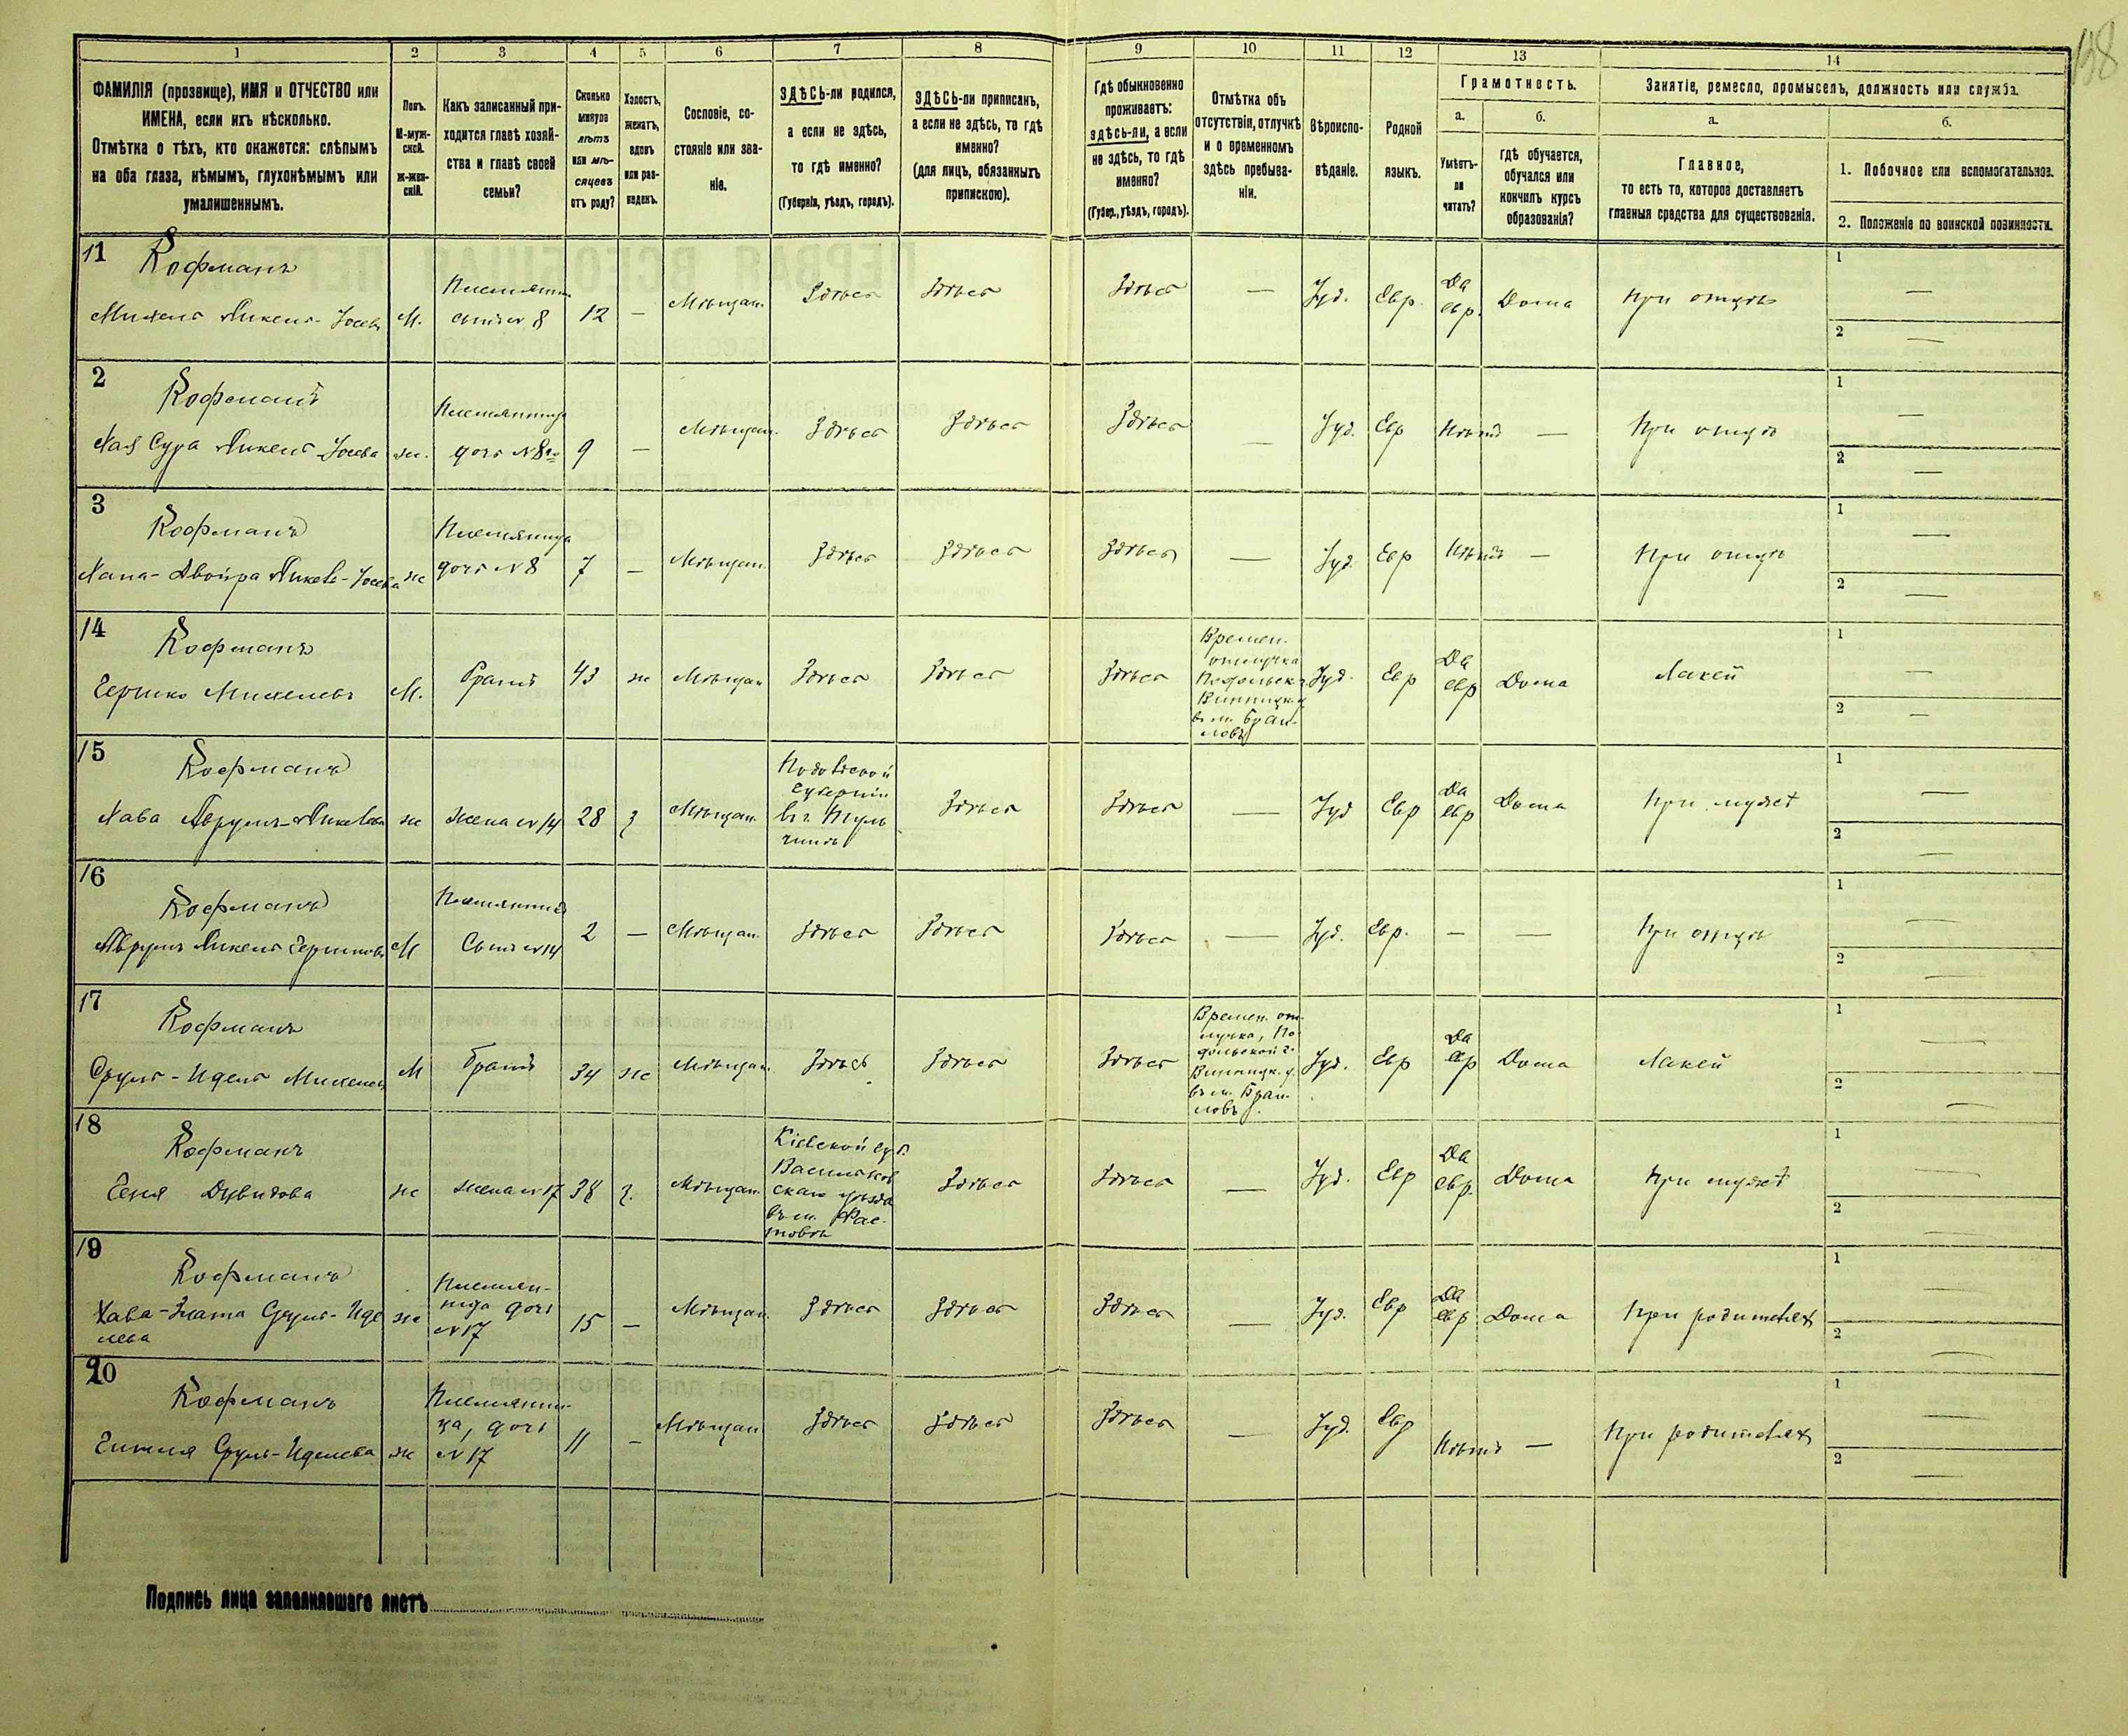 198
1 2 3 4 5 6 7 8 9 10 11 12 13 14
ФАМИЛІЯ (прозвище), ИМЯ и ОТЧЕСТВО или
ИМЕНА, если ихъ нѣсколько.
Отмѣтка о тѣхъ, кто окажется: слѣпымъ
на оба глаза, нѣмымъ, глухонѣмымъ или
умалишеннымъ.
Полъ.
М-муж-
ской.
ж-жен-
скій.
Какъ записанный при-
ходится главѣ хозяй-
ства и главѣ своей
семьи?
Сколько
минуло
лѣтъ
или мѣ-
сяцевъ
отъ роду?
Холостъ,
женатъ,
вдовъ
или раз-
веденъ.
Сословіе, со-
стояніе или зва-
ніе.
ЗДѢСЬ-ли родился,
а если не здѣсь,
то гдѣ именно?
(Губернія, уѣздъ, городъ).
ЗДѢСЬ-ли приписанъ,
а если не здѣсь, то гдѣ
именно?
(для лицъ, обязанныхъ
припискою).
Гдѣ обыкновенно
проживаетъ:
здѣсь-ли, а если
не здѣсь, то гдѣ
именно?
(Губер., уѣздъ, городъ).
Отмѣтка объ
отсутствіи, отлучкѣ
и о временномъ
здѣсь пребыва-
ніи.
Вѣроиспо-
вѣданіе.
Родной
языкъ.
Грамотность.
а.
Умѣетъ-
ли
читать?
б.
гдѣ обучается,
обучался или
кончилъ курсъ
образованія?
Занятіе, ремесло, промыселъ, должность или служба.
а.
Главное,
то есть то, которое доставляетъ
главныя средства для существованія.
б.
1. Побочное или вспомогательное.
2. Положеніе по воинской повинности.
11
Кофманъ
М. сынъ № 8 12 — Мѣщан. Здѣсь Здѣсь Здѣсь — Іуд. Евр. Да евр. Дома при отцѣ 1 — 2 —
2
Кофманъ
Сура ж. дочь № 8 9 — Мѣщан. Здѣсь Здѣсь Здѣсь — Іуд. Евр Нѣтъ — При отцѣ 1 — 2 —
3
Кофманъ
Племянница
Двойра ж дочь № 8 7 — Мѣщан. Здѣсь Здѣсь Здѣсь — Іуд. Евр Нѣтъ — При отцѣ 1 — 2 —
14
Кофманъ
Гершко М. Братъ 43 ж Мѣщан Здѣсь Здѣсь Здѣсь
Времен.
отлучка
Подольск. г.
Винницк. у
въ м. Браи-
ловъ
Іуд. Евр Да евр Дома Лакей 1 — 2 —
15
Кофманъ
Хава ж жена № 14 28 з Мѣщан.
Подольской
Губерніи
въ г. Туль
чинѣ
Здѣсь Здѣсь — Іуд Евр Да евр Дома При мужѣ 1 — 2 —
16
Кофманъ
Племянникъ
М Сынъ № 14 2 — Мѣщан. Здѣсь Здѣсь Здѣсь — Іуд. Евр. — — При отцѣ 1 — 2 —
17
Кофманъ
Сруль-Идель М Братъ 34 ж Мѣщан. Здѣсь Здѣсь Здѣсь
Времен. от-
лучка, По-
дольской г.
Винницк. у.
въ м. Браи-
ловъ.
Іуд. Евр Да евр Дома Лакей 1 — 2 —
18
Кофманъ
ж жена № 17 38 з. Мѣщан.
Кіевской губ.
Васильков
скаго уѣзда
въ м. Фас-
товѣ
Здѣсь Здѣсь — Іуд. Евр Да евр. Дома При мужѣ 1 — 2 —
19
Кофманъ
Хава-Злата Сруль-Иде
лева ж
Племян-
ница дочь
№ 17
15 — Мѣщан. Здѣсь Здѣсь Здѣсь — Іуд. Евр Да евр Дома При родителях 1 — 2 —
20
Кофманъ
Сруль-Иделева ж
Племянни-
ца, дочь
№ 17
11 — Мѣщан Здѣсь Здѣсь Здѣсь — Іуд. Евр Нѣтъ — При родителях 1 — 2 —
Подпись лица заполнявшаго листъ